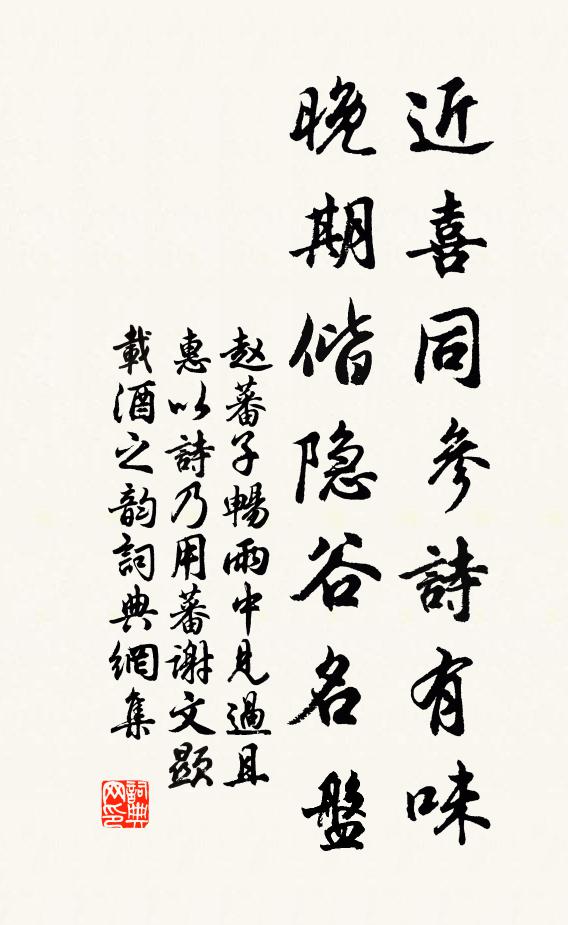 近喜同參詩有味
晚期偕隐谷名盤
赵蕃子暢雨中見過且
惠以詩乃用蕃謝文顯
載酒之韵詞典網集
詞典网印